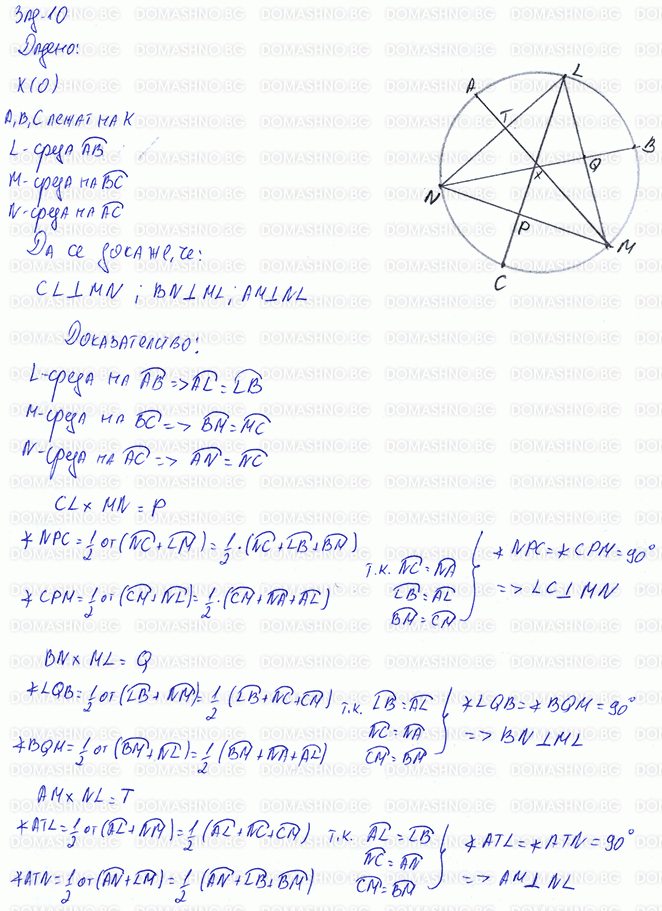 Зад. 10
Дадено:
K(O)
A, B, C лежат на K
L - среда AB
M - среда на BC
N - среда на AC
Да се докаже, че:
CL⊥MN ; BN⊥ML; AM⊥NL
Доказателство:
L - среда на AB => AL = LB
M - среда на BC => BM = MC
N - среда на AC => AN = NC
CL x MN = P
∢NPC = 1/2 от (NC + LM) = 1/2 . (NC + LB + BM)
∢CPM = 1/2 от (CM + NL) = 1/2 . (CM + NA + AL)
т.к. NC = NA
LB = AL
BM = CM
∢NPC = ∢CPM = 90°
=> LC⊥MN
BN x ML = Q
∢LQB = 1/2 от (LB + NM) = 1/2 (LB + NC + CM)
∢BQM = 1/2 от (BM + NL) = 1/2 (BM + NA + AL)
т.к. LB = AL
NC = NA
CM = BM
∢LQB = ∢BQM = 90°
=> BN⊥ML
AM x NL = T
∢ATL = 1/2 от (AL + NM) = 1/2 (AL + NC + CM)
∢ATN = 1/2 от (AN + LM) = 1/2 (AN + LB + BM)
т.к. AL = LB
NC = AN
CM = BM
∢ATL = ∢ATN = 90°
=> AM⊥NL
L
A
T
B
Q
x
N
P
M
C
DOMASHNO.BG